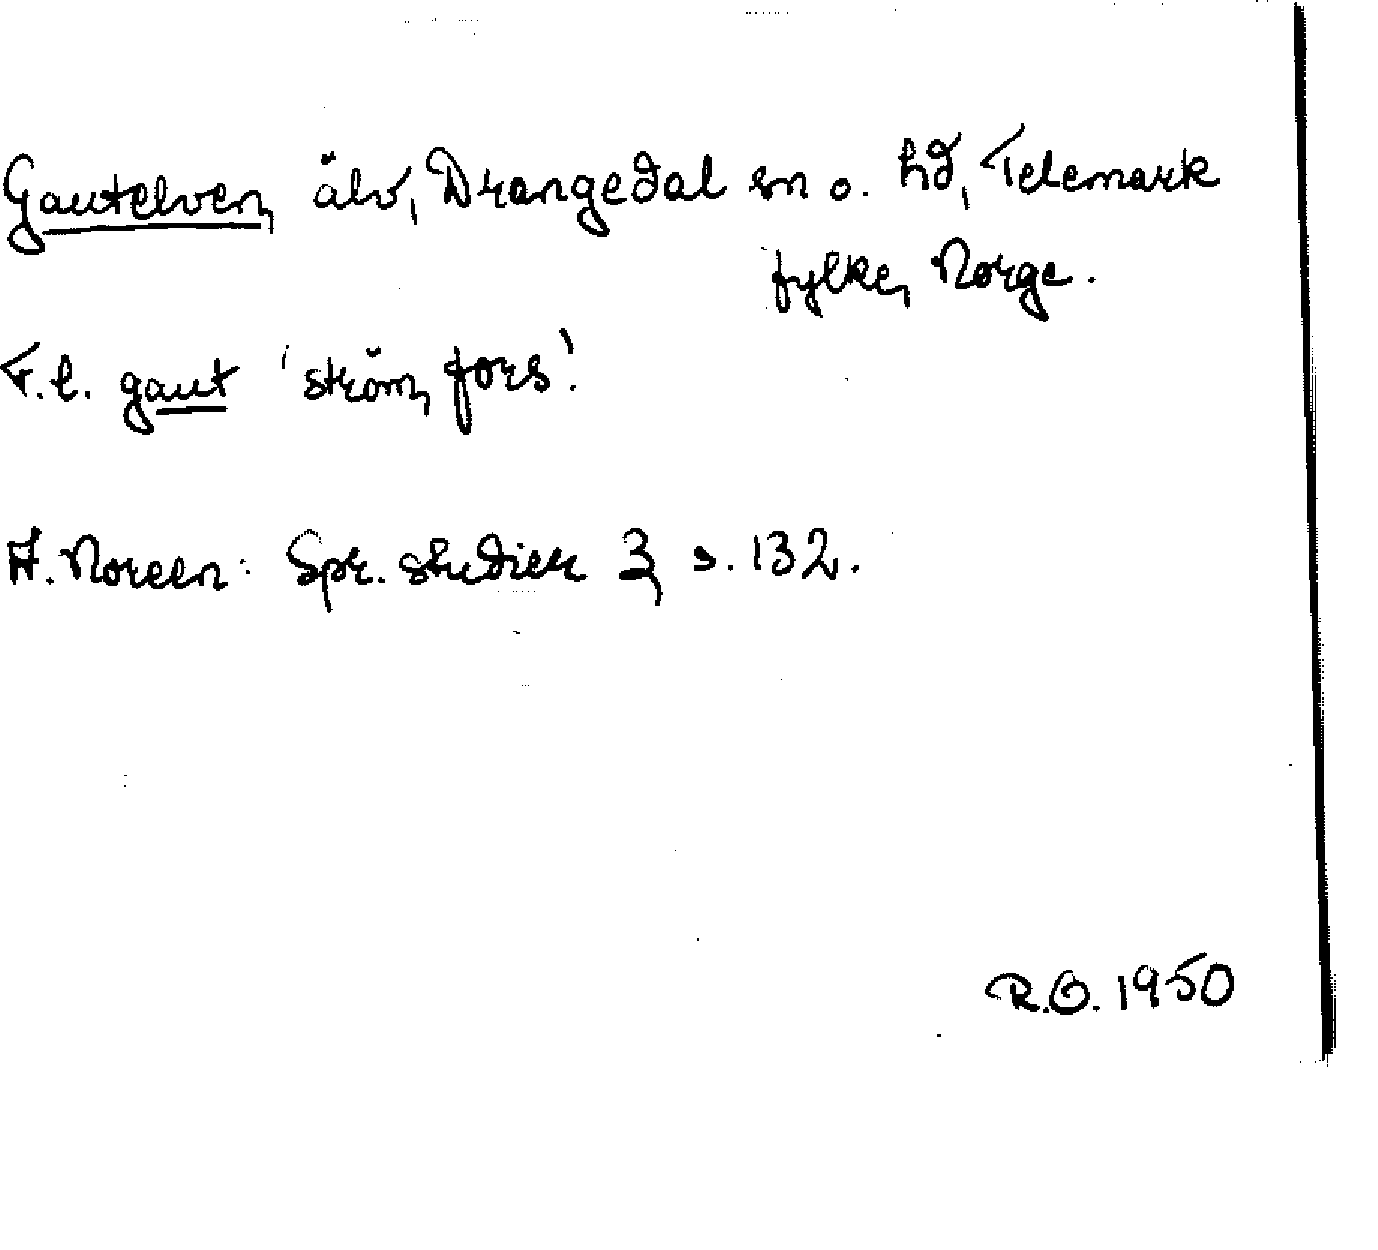 Gautelven, älv, Drangedal sn o. hd, Telemark
fylke, Norge.
F.l. gaut 'ström, fors'.
A. Noreen: Spr. studier 3, s. 132.
R.O. 1950